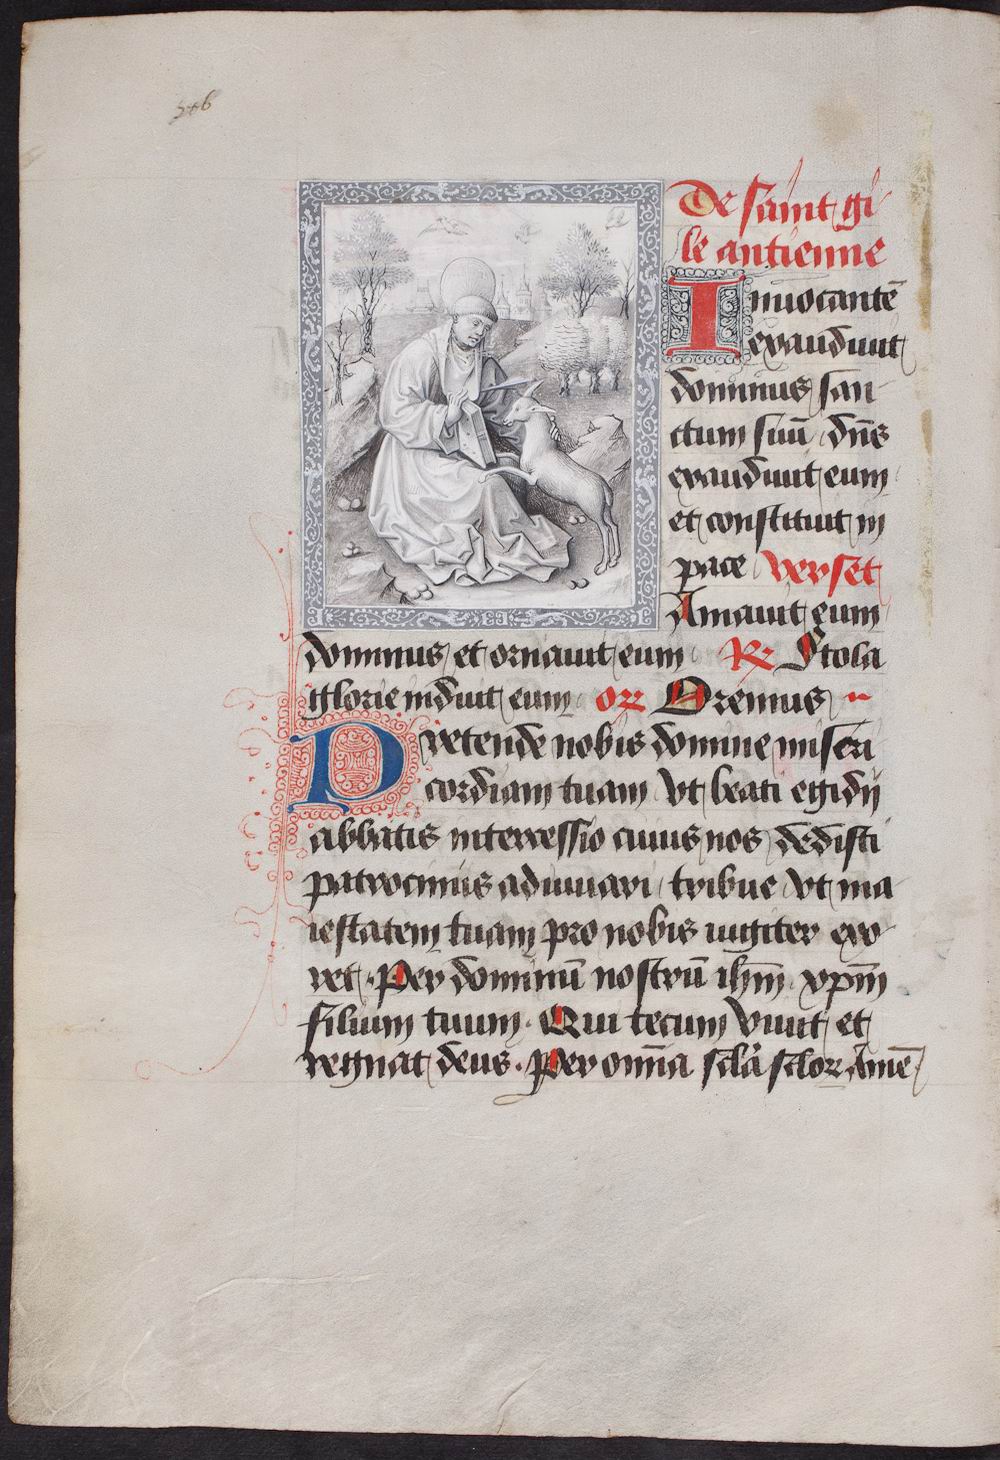 De saint gi
le antienne
Inuocantē
exaudiuit
dominus san
ctum suū dn̄s
exaudiuit eum
et constituit in
pace verset
Amauit eum
dominus et ornauit eum R Stola
glorie induit eum or Oremus
Pretende nobis domine miseri
cordiam tuam vt beati egidij
abbatis intercessio cuius nos dedisti
patrocinijs adiuuari tribue vt ma
iestatem tuam pro nobis iugiter exo
ret. Per dominū nostrū ihm̄ xpm̄
filium tuum. Qui tecum viuit et
regnat deus. Per omīa scl̄a sclor Amē